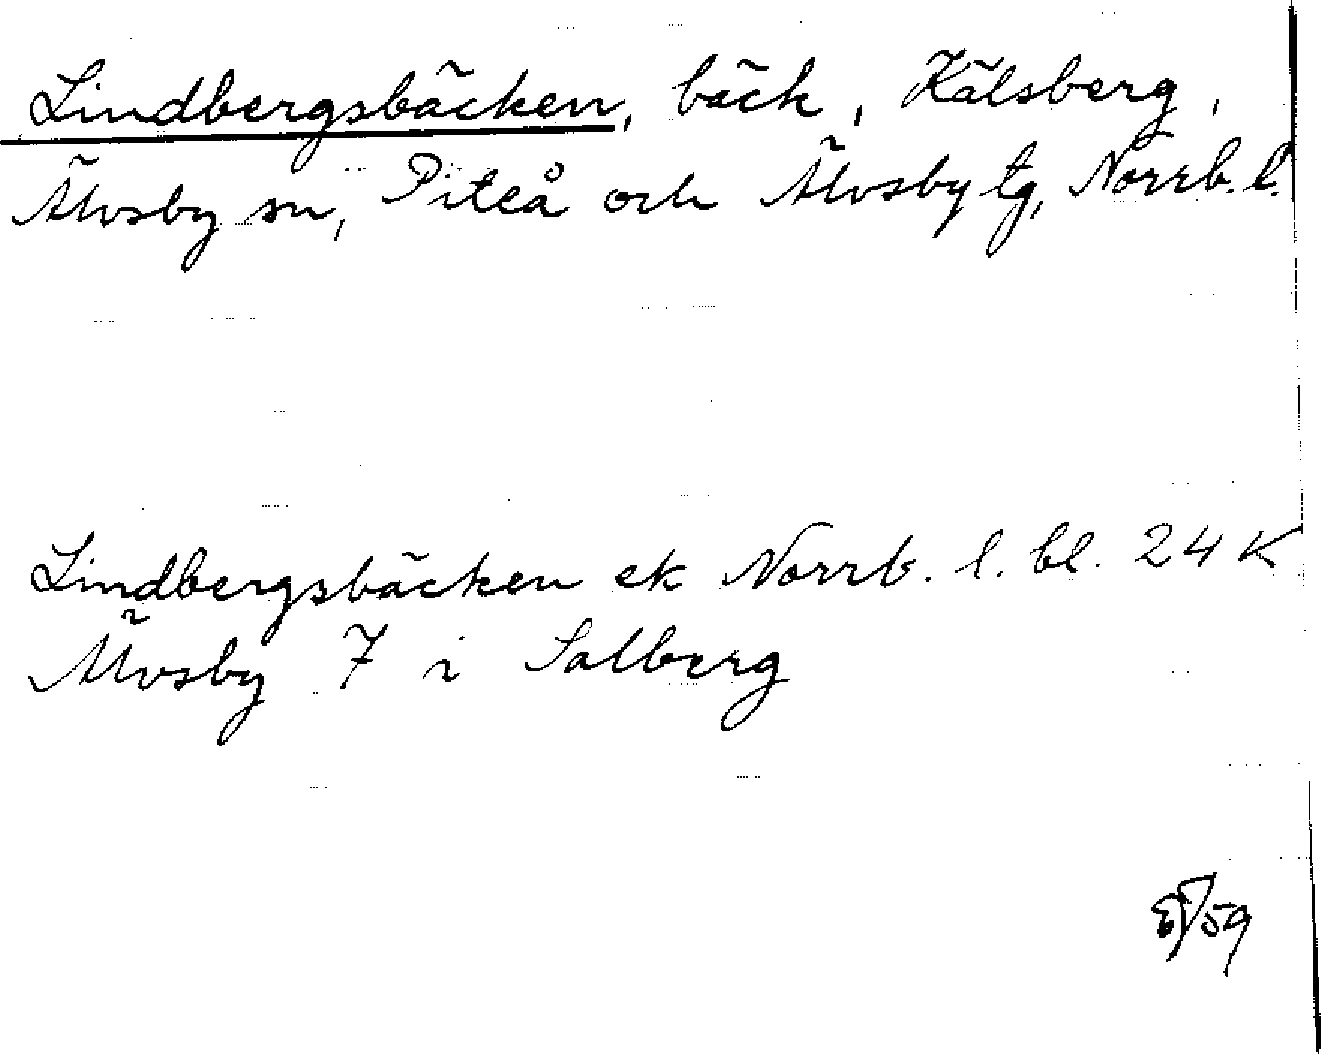 Lindbergsbäcken, bäck, Kälsberg,
Älvsby sn, Piteå och Älvsby tg, Norrb. l.
Lindbergsbäcken ek Norrb. l. bl. 24 K
Älvsby 7 i Salberg
59